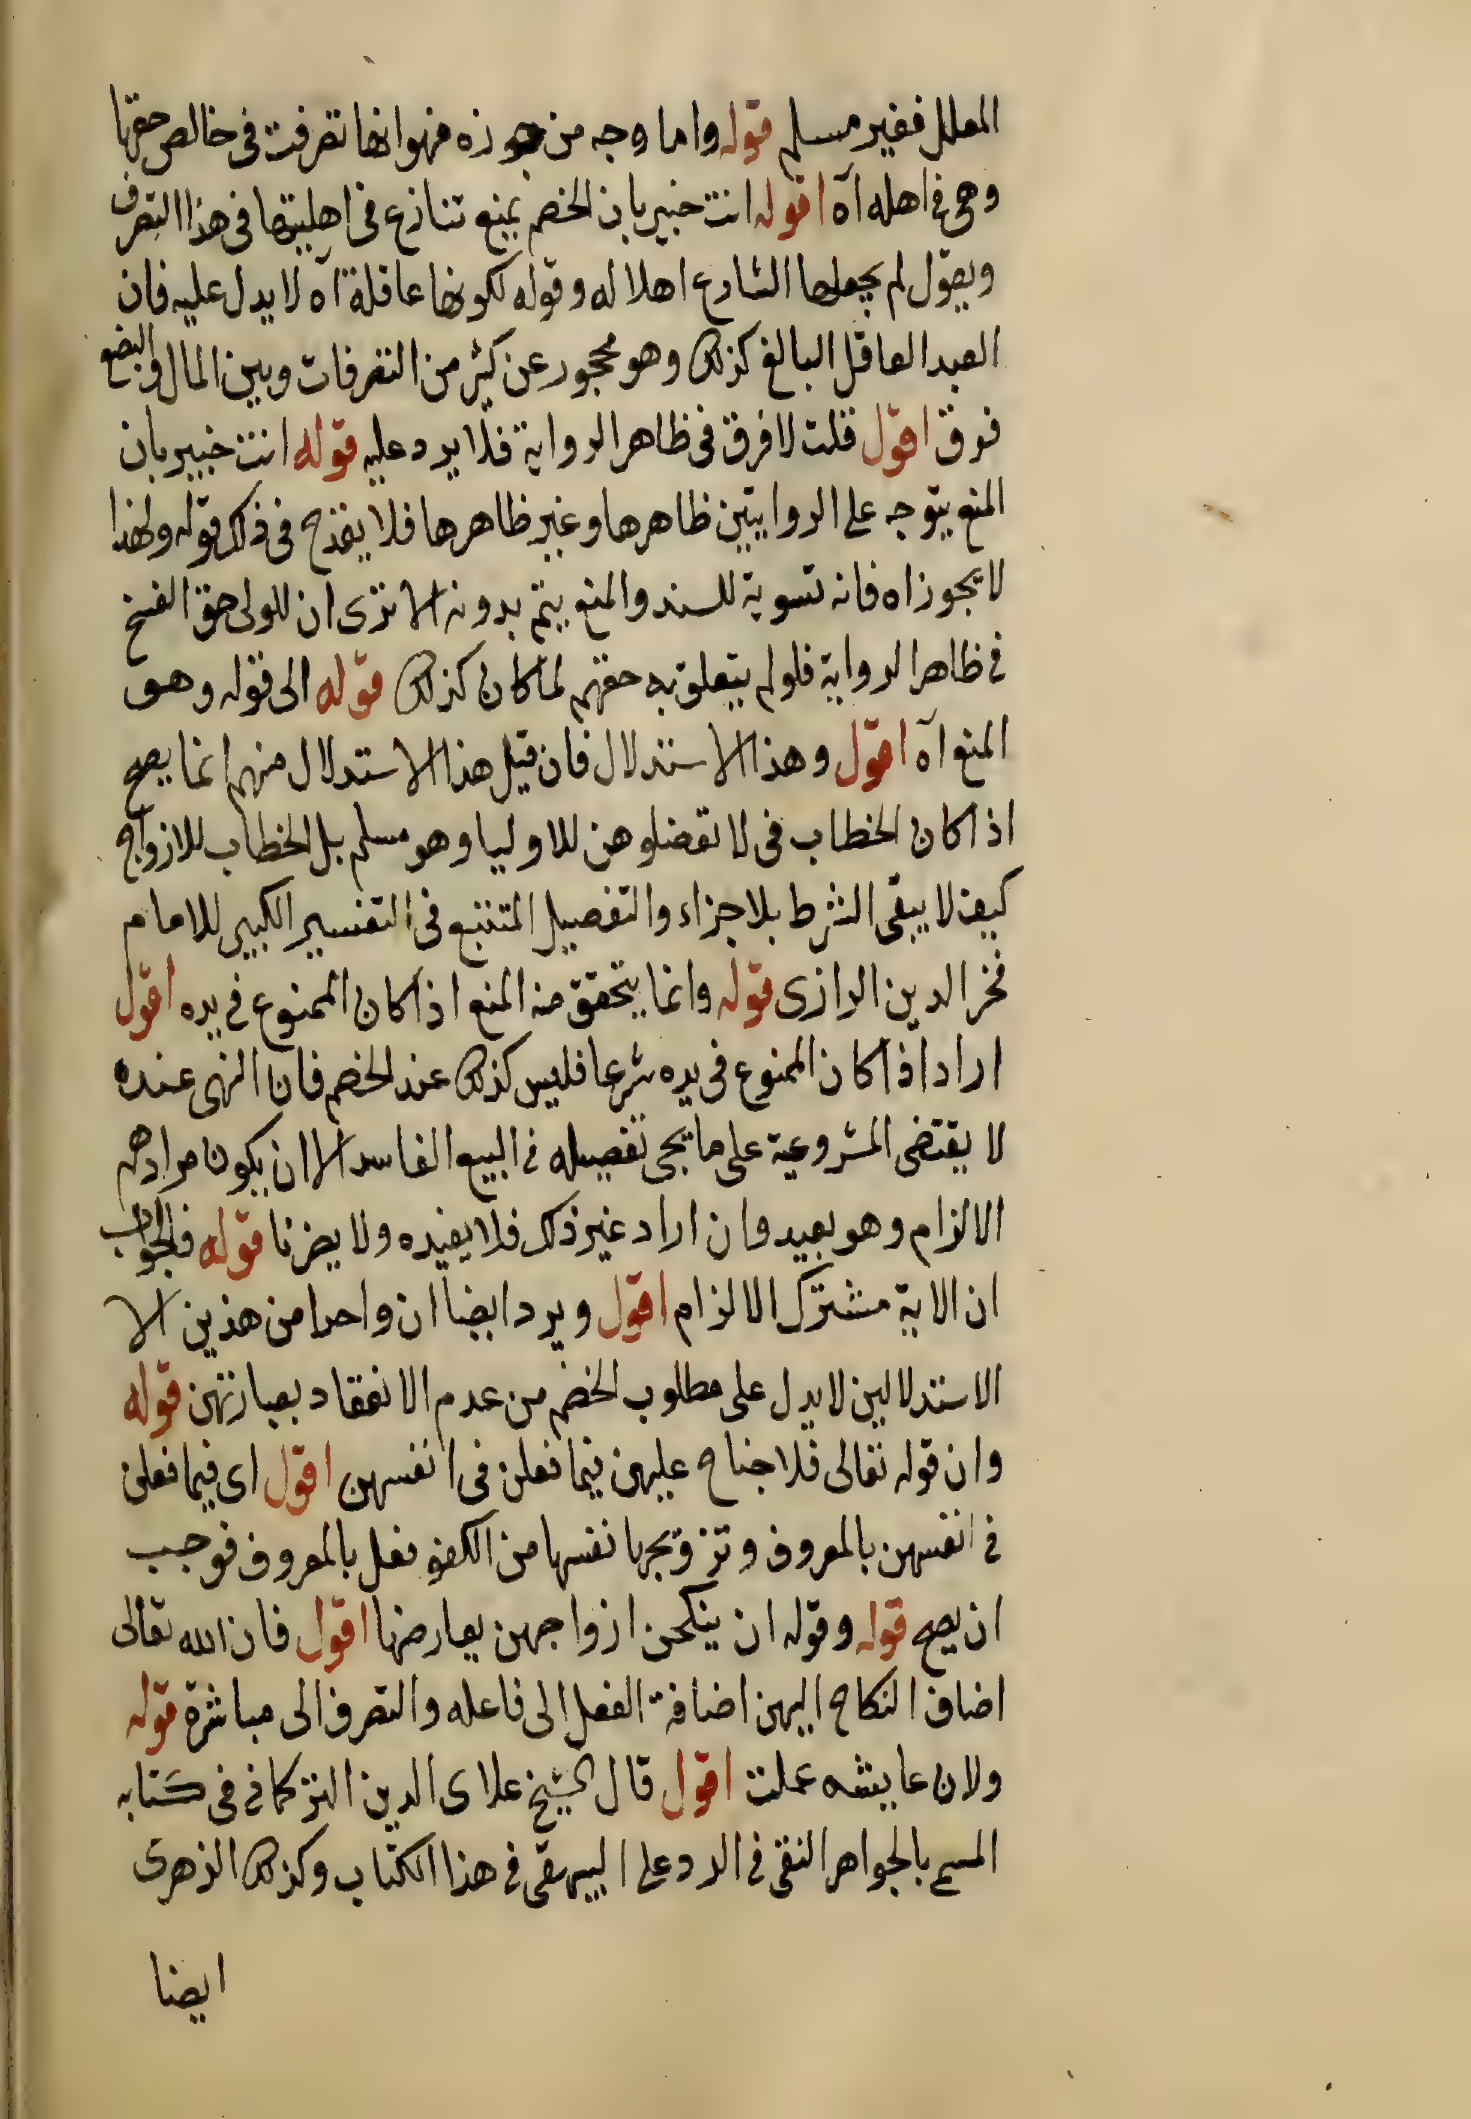 المعلل فغير مسلم قوله واما وجه من جوزه فهو انها تصرفت فى خالص حقها
وهى فى اهله آه اقوله انت خبير بان الخصم يمنع تنازع فى اهليتها فى هذا التصرف
ويقول لم يجعلها الشارع اهلا له وقوله لكونها عاقلة آه لا يدل عليه فان
العبد العاقل البالغ كذلك وهو محجور عن كثير من التصرفات وبين المال والبضع
فرق اقول قلت لا فرق فى ظاهر الرواية فلا يرد عليه قوله انت خبير بان
المنع يتوجه على الروايتين ظاهرها وغير ظاهرها فلا يقدح فى ذلك قوله ولهذا
لا يجوز اه فانه تسوية للسند والمنع يتم بدونه الا ترى ان للولى حق الفسخ
فى ظاهر الرواية فلو لم يتعلق به حقهم لما كان كذلك قوله الى قوله وهو
المنع آه اقول وهذا الاستدلال فان قيل هذا الاستدلال منهم انما يصح
اذا كان الخطاب فى لا تعضلوهن للاوليا وهو مسلم بل الخطاب للازواج
كيف لا يبقى الشرط بلا جزاء والتفصيل المتتبع فى التفسير الكبير للامام
فخر الدين الرازى قوله وانما يتحقق منه المنع اذا كان الممنوع فى يده اقول
اراد اذا كان الممنوع فى يده شرعا فليس كذلك عند الخصم فان النهى عنده
لا يقتضى المشروعية على ما يجى تفصيله فى البيع الفاسد الا ان يكون مرادهم
الالزام وهو بعيد وان اراد غير ذلك فلا يفيده ولا يضرنا قوله فالجواب
ان الاية مشترك الالزام اقول ويرد ايضا ان واحدا من هذين الا
الاستدلالين لا يدل على مطلوب الخصم من عدم الانعقاد بعبارتهن قوله
وان قوله تعالى فلا جناح عليهن فيما فعلن فى انفسهن اقول اى فيما فعلن
فى انفسهن بالمعروف وتزويجها نفسها من الكفو فعل بالمعروف فوجب
ان يصح قوله وقوله ان ينكحن ازواجهن يعارضها اقول فان الله تعالى
اضاف النكاح اليهن اضافة الفعل الى فاعله والتصرف الى مباشرة قوله
ولان عايشه عملت اقول قال الشيخ علاى الدين التركمانى فى كتابه
المسمى بالجواهر النقى فى الرد على البيهقى فى هذا الكتاب وكذلك الزهرى
ايضا